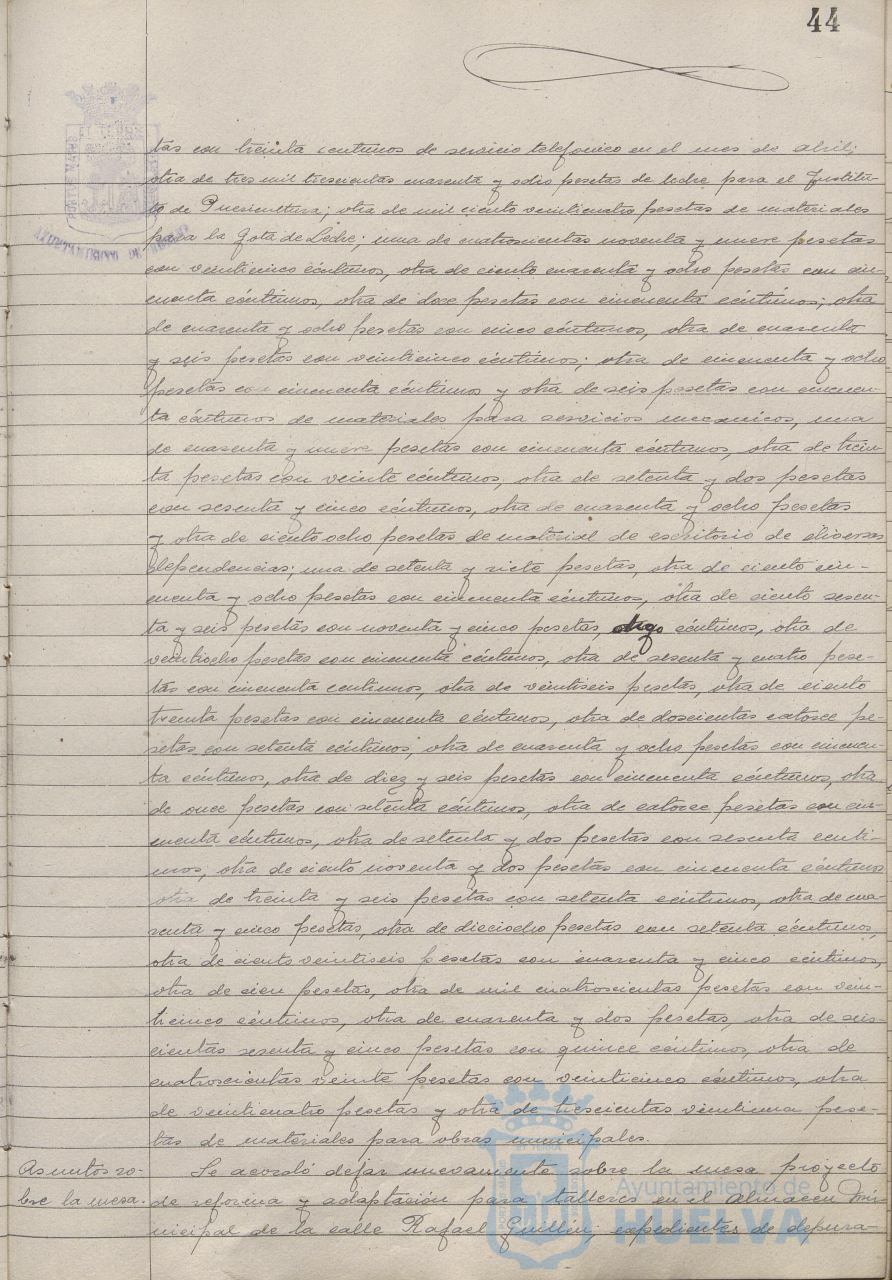 44
tas con treinta centimos de servicio telefonico en el mes de abril;
otra de tres mil trescientas cuarenta y ocho pesetas de leche para el Institu-
to de Puericultura; otra de mil ciento veinticuatro pesetas de materiales
para la Gota de Leche; una de cuatrocientas noventa y nueve pesetas
con veinticinco céntimos, otra de ciento cuarenta y ocho pesetas con cin-
cuenta céntimos, otra de doce pesetas con cincuenta céntimos; otra
de cuarenta y ocho pesetas con cinco céntimos, otra de cuarenta
y seis pesetas con veinticinco céntimos; otra de cincuenta y ocho
pesetas con cincuenta céntimos y otra de seis pesetas con cincuen-
ta céntimos de materiales para servicios mecanicos, una
de cuarenta y nueve pesetas con cincuenta céntimos, otra de trein-
ta pesetas con veinte céntimos, otra de setenta y dos pesetas
con sesenta y cinco céntimos, otra de cuarenta y ocho pesetas
y otra de ciento ocho pesetas de material de escritorio de diversas
dependencias; una de setenta y siete pesetas, otra de ciento cin-
cuenta y ocho pesetas con cincuenta céntimos, otra de ciento sesen-
ta y seis pesetas con noventa y cinco pesetas, digo céntimos, otra de
veintiocho pesetas con cincuenta céntimos, otra de sesenta y cuatro pese-
tas con cincuenta centimos, otra de veintiseis pesetas, otra de ciento
treinta pesetas con cincuenta céntimos, otra de doscientas catorce pe-
setas con setenta céntimos, otra de cuarenta y ocho pesetas con cincuen-
ta céntimos, otra de diez y seis pesetas con cincuenta céntimos, otra
de once pesetas con setenta céntimos, otra de catorce pesetas con cin-
cuenta céntimos, otra de setenta y dos pesetas con sesenta centi-
mos, otra de ciento noventa y dos pesetas con cincuenta céntimos
otra de treinta y seis pesetas con setenta céntimos, otra de cua-
renta y cinco pesetas, otra de dieciocho pesetas con setenta céntimos,
otra de ciento veintiseis pesetas con cuarenta y cinco céntimos,
otra de cien pesetas, otra de mil cuatroscientas pesetas con vein-
ticinco céntimos, otra de cuarenta y dos pesetas, otra de seis-
cientas sesenta y cinco pesetas con quince céntimos, otra de
cuatroscientas veinte pesetas con veinticinco céntimos, otra
de veinticuatro pesetas y otra de trescientas veintiuna pese-
tas de materiales para obras municipales.
Asuntos so-
bre la mesa.
Se acordó dejar nuevamente sobre la mesa proyecto
de reforma y adaptación para talleres en el Almacen Mu-
nicipal de la calle Rafael Guillén; expedientes de depura-
Ayuntamiento de
HUELVA